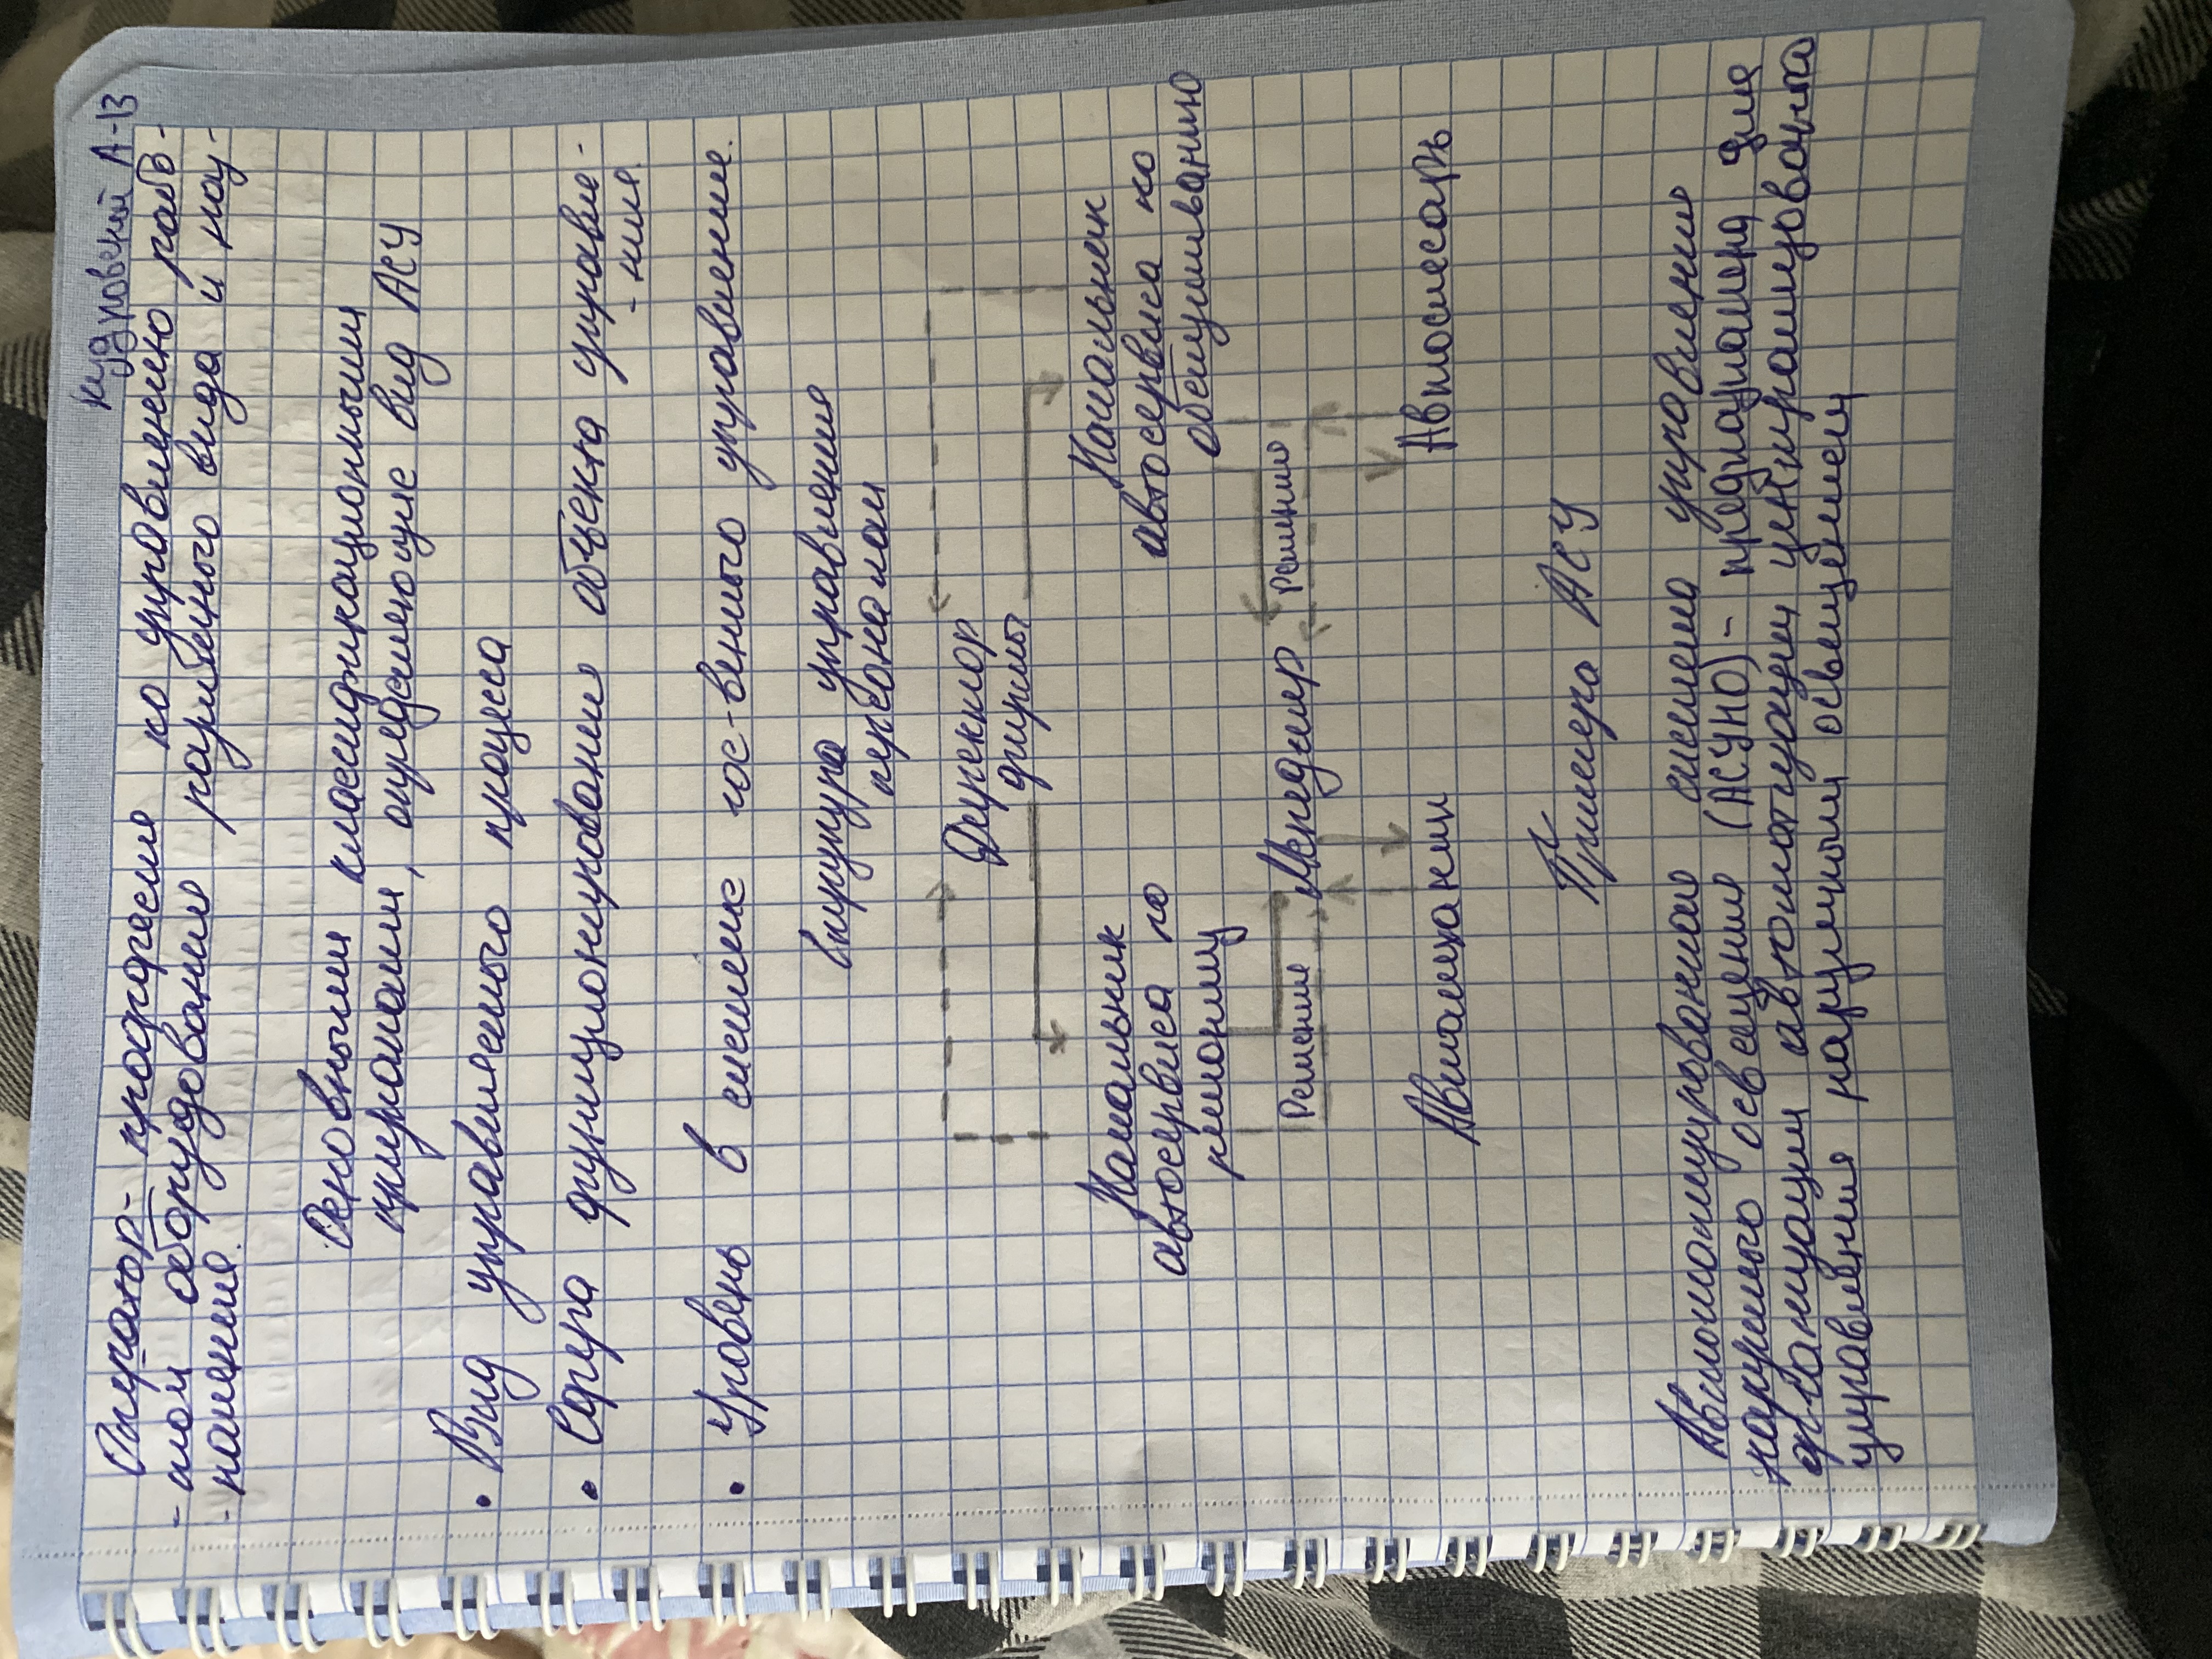 А-13
Оператор - профессия по управлению рабо-
-той оборудования различного вида и наз-
-начения.
Основными классификационными
признаками, определяющие вид АСУ
• Вид управляемого процесса
• Сфера функционирования объекта управле-
-ния
• Уровень в системе гос-венного управления.
Структура управления
персоналом
Директор
фирмы
Начальник
автосервиса по
ремонту
Начальник
автосервиса по
обслуживанию
Решение
Менеджер
Решение
Автомеханик
Автослесарь
Примеры АСУ
Автоматизированная система управления
наружного освещения (АСУНО) - предназначена для
организации автоматизации централизованого
управления наружным освещением